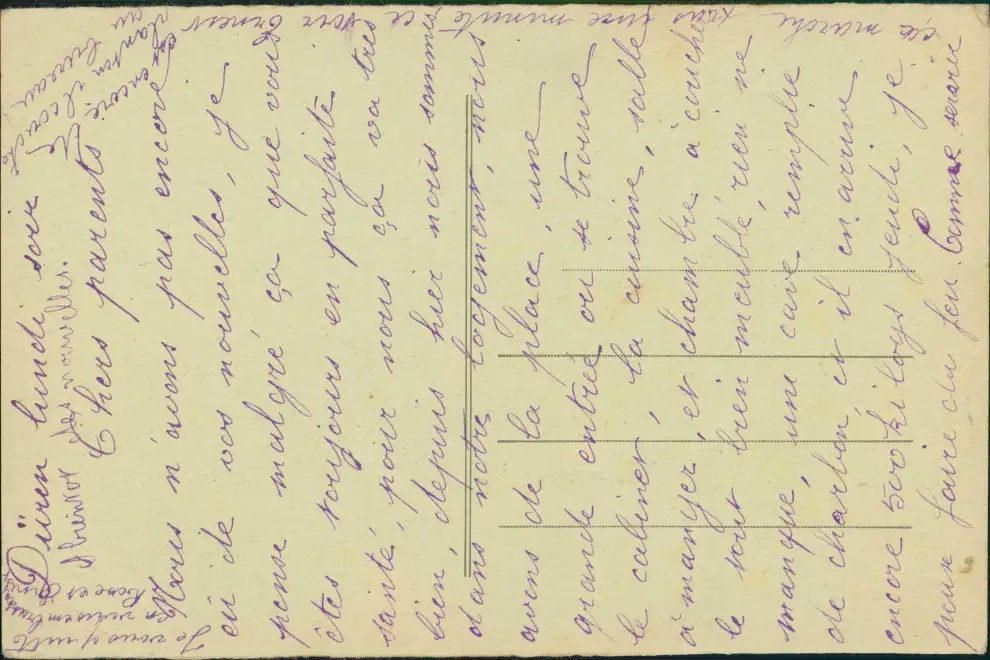 Düren lundi soir
Chers parents
Nous n'avons pas encore
eû de vos nouvelles, je
pense malgré ça que vous
êtes toujours en parfaite
santé, pour nous ça va très
bien, depuis hier nous sommes
dans notre logement, nous
avons de la place, une
grande entrée ou se trouve
le cabinet, la cuisine, salle
à manger, et chambre à coucher
le tout bien meublé, rien ne
manque, un cave remplie
de charbon, et il en arrive
encore 500 kilogs jeudi, je
peux faire du feu comme
ce soir Ernest
est encore
planton il couche
au bureau.
A bientôt des nouvelles.
Je vous quitte
en vous embrassant